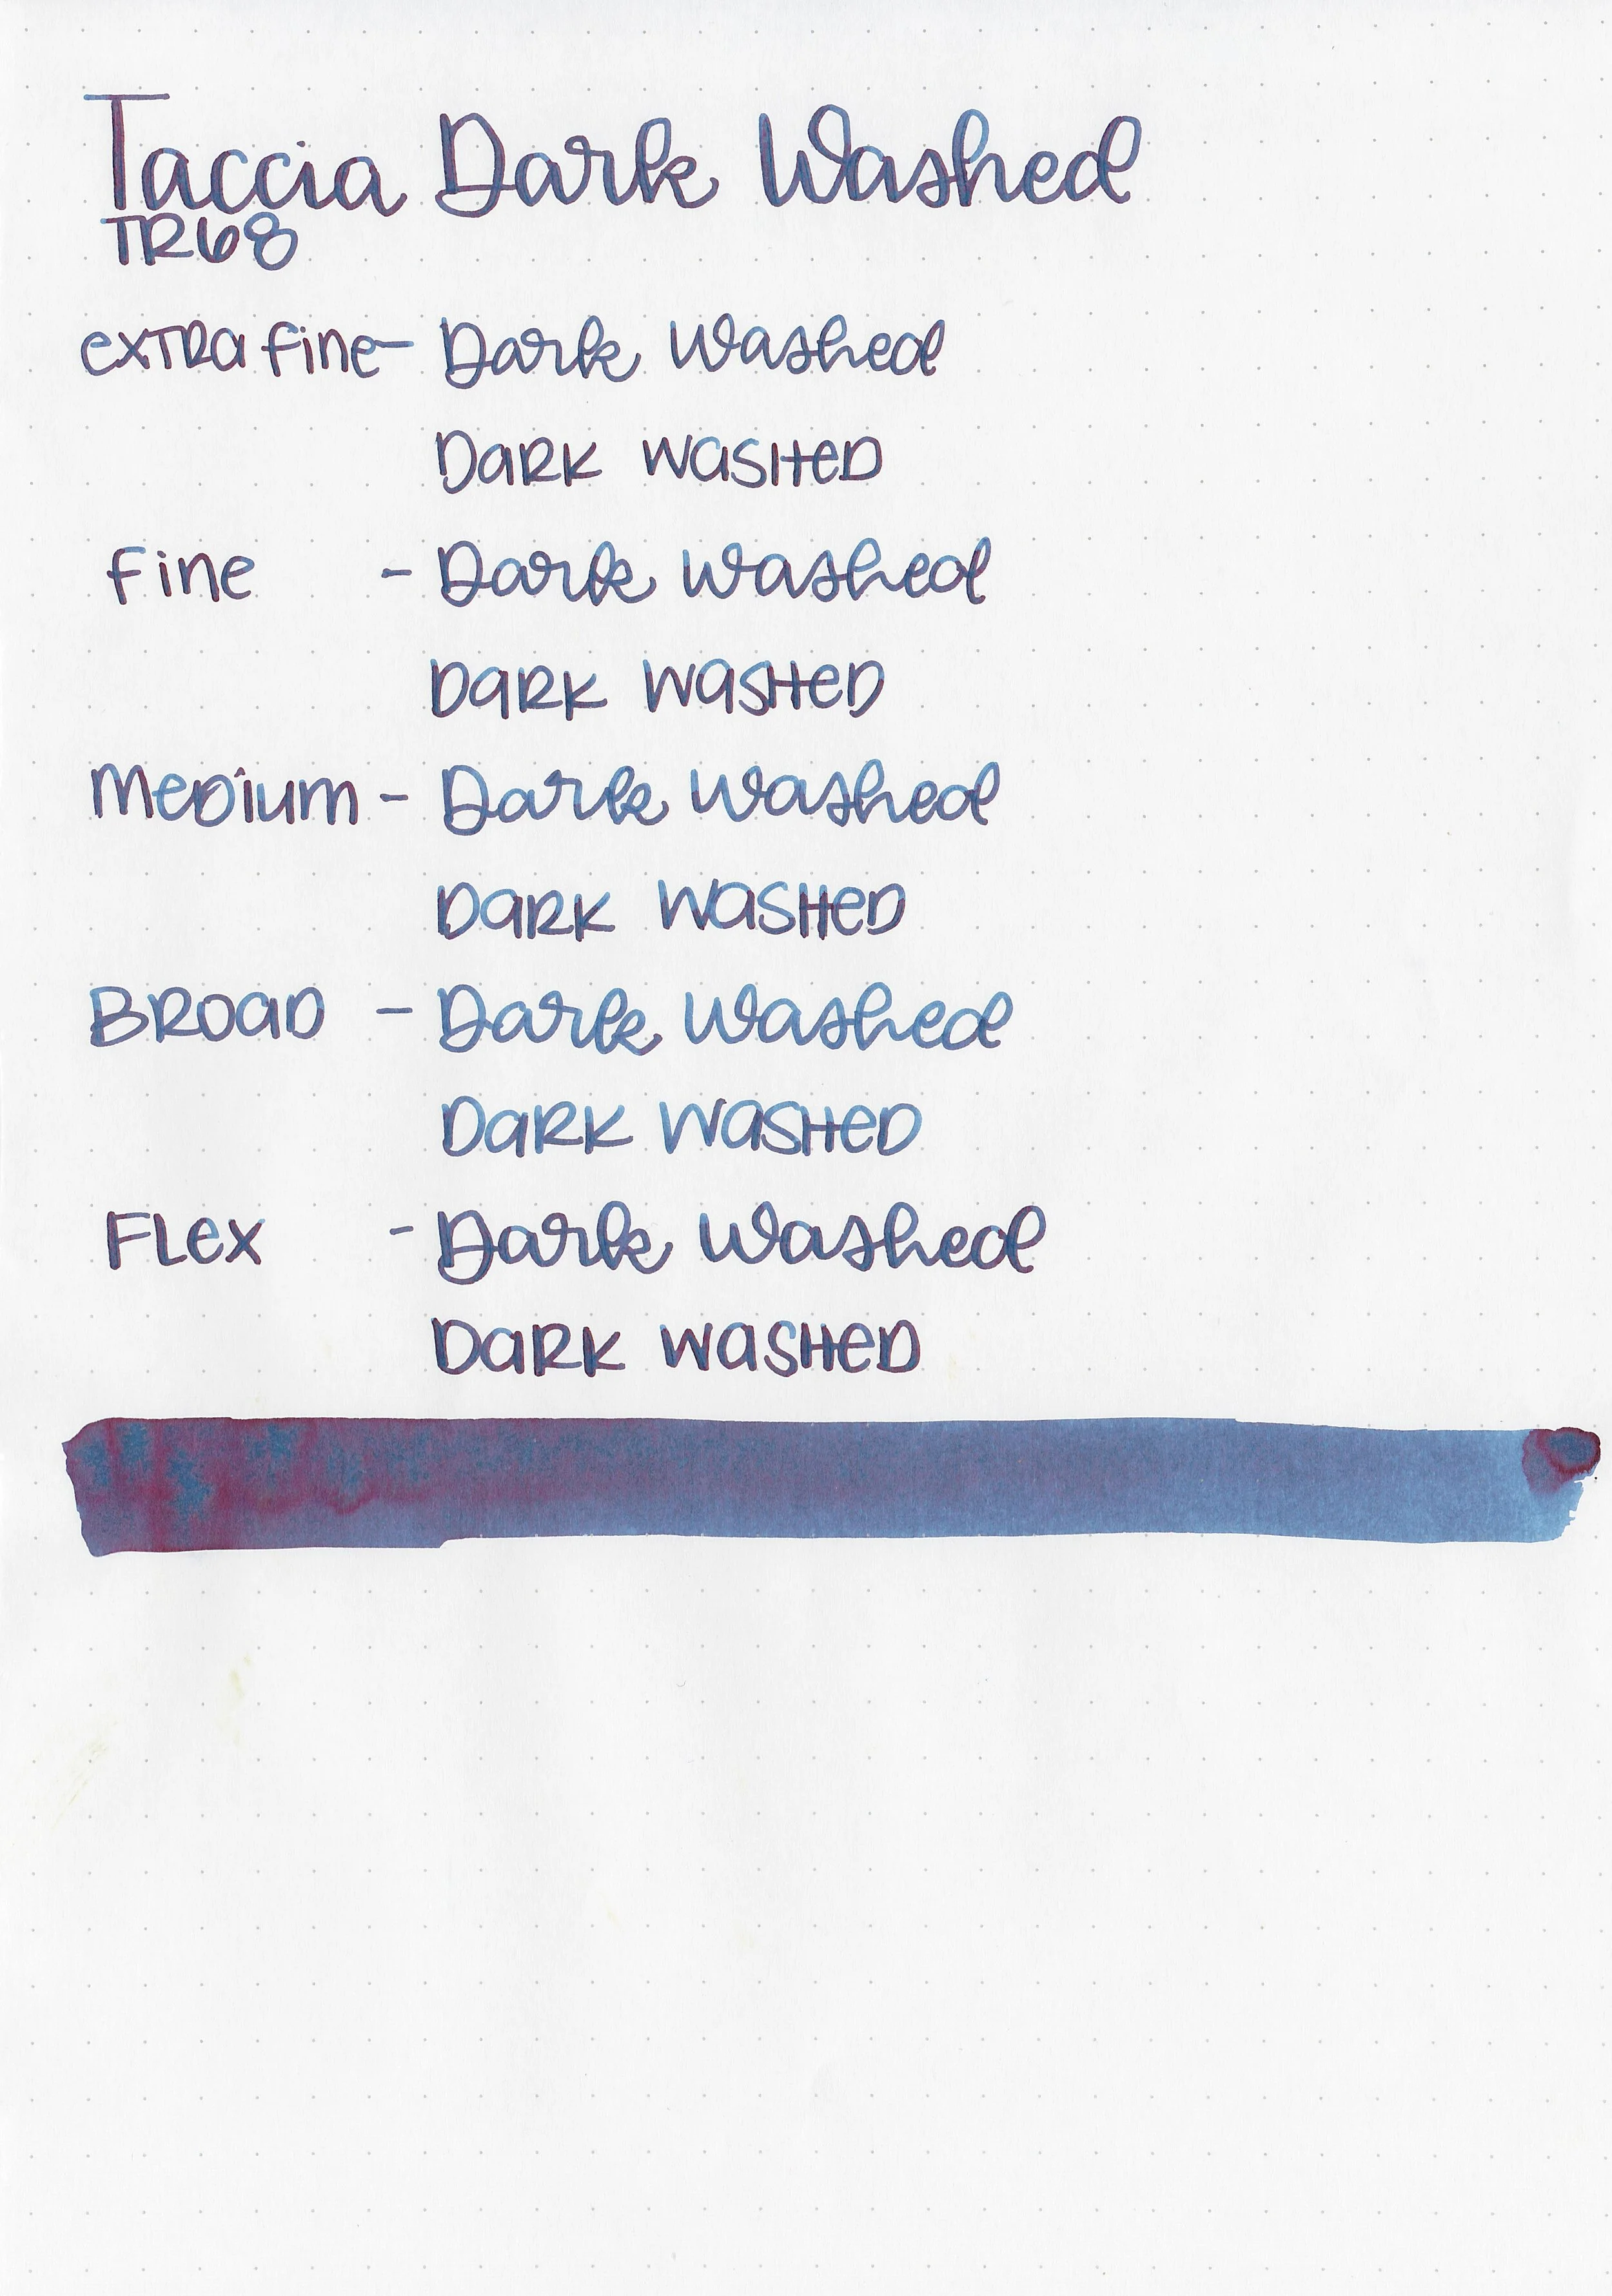 Taccia Dark Washed
TR68
extra fine - Dark Washed
Dark Washed
Fine - Dark Washed
Dark Washed
Medium - Dark Washed
Dark Washed
Broad - Dark Washed
Dark Washed
Flex - Dark Washed
Dark Washed